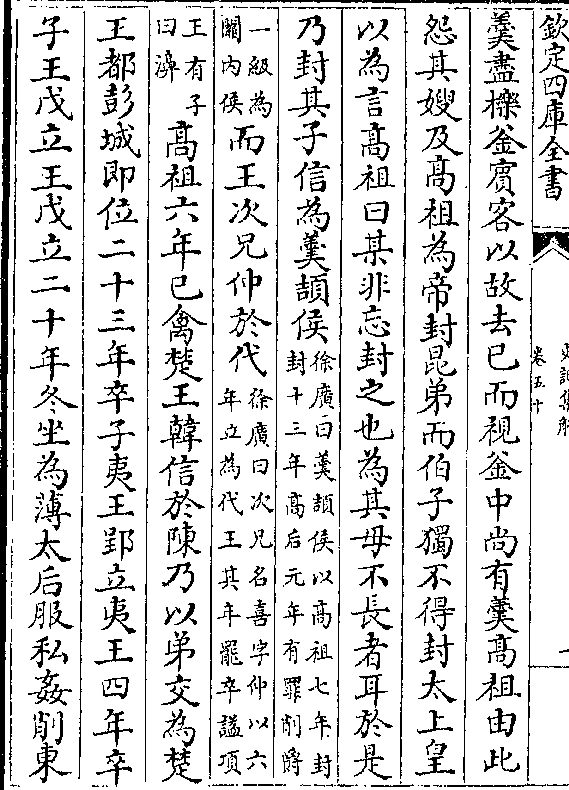 欽定四庫全書
史記集解
卷五十
一
羮盡櫟釜賓客以故去已而視釜中尚有羮髙祖由此
怨其嫂及髙祖為帝封昆弟而伯子獨不得封太上皇
以為言髙祖曰某非忘封之也為其母不長者耳於是
乃封其子信為羮頡侯徐廣曰羮頡侯以髙祖七年封封十三年髙后元年有罪削爵
一級為關内侯而王次兄仲於代徐廣曰次兄名喜字仲以六年立為代王其年罷卒諡項
王有子曰濞髙祖六年已禽楚王韓信於陳乃以弟交為楚
王都彭城即位二十三年卒子夷王郢立夷王四年卒
子王戊立王戊立二十年冬坐為薄太后服私姦削東